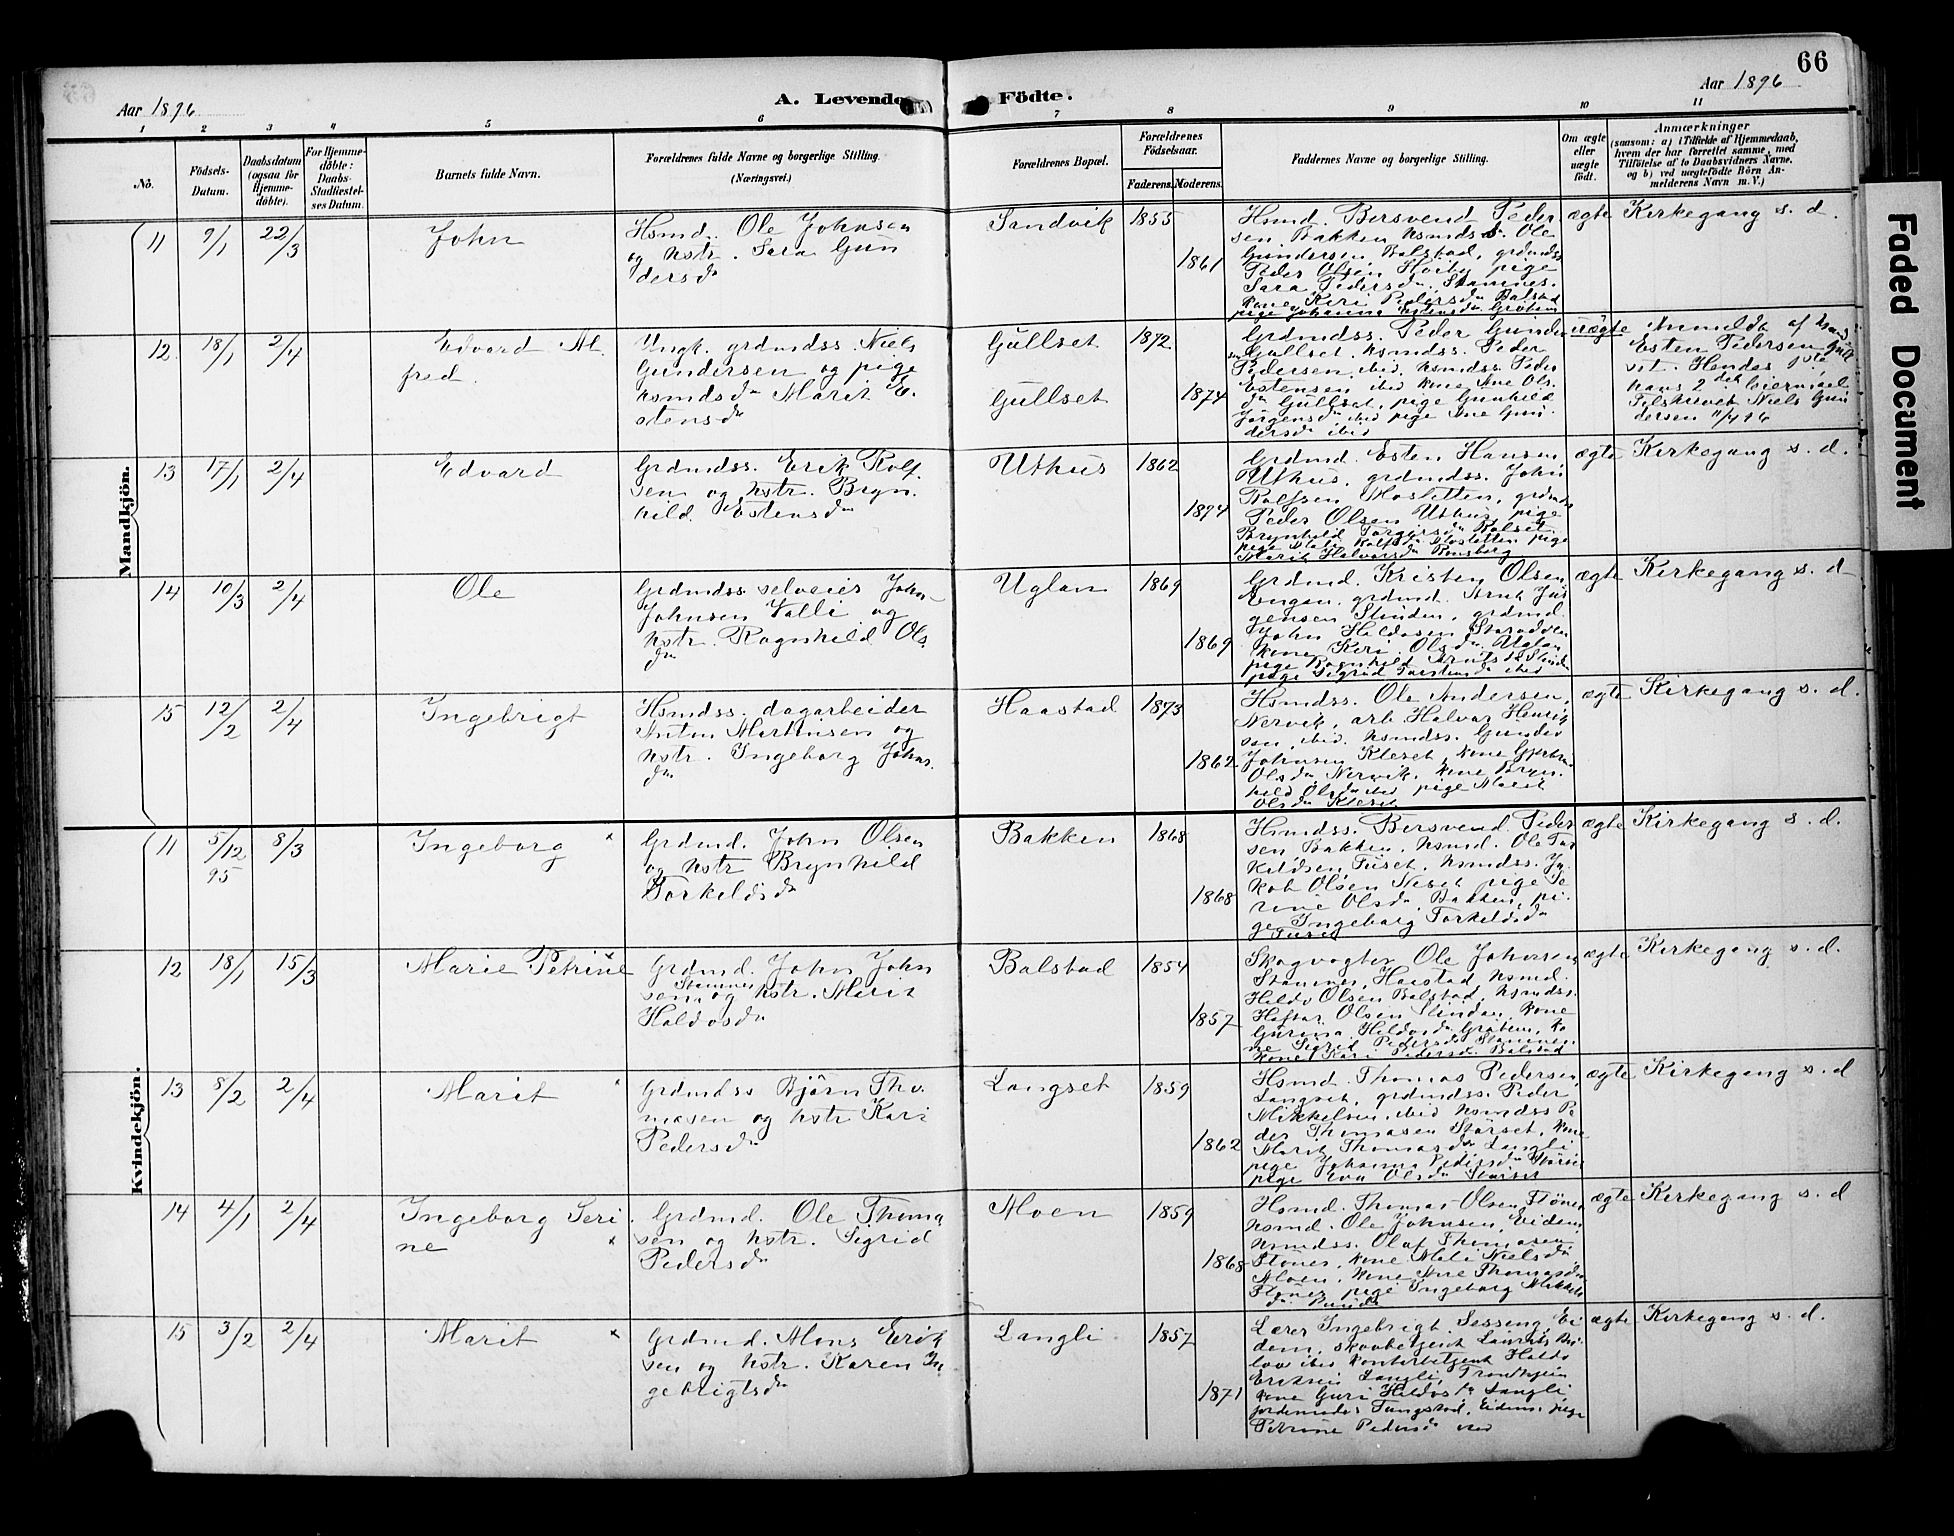 66
Aar 1896
A. Levende Födte.
Aar 1896
1 2 3 4 5 6 7 8 9 10 11
No.
Födsels-Datum.
Daabsdatum (ogsaa for Hjemme-döbte).
For Hjemme-döbte: Daabs-Stadfæstel-ses Datum.
Barnets fulde Navn.
Forældrenes fulde Navne og borgerlige Stilling.
(Næringsvei.)
Forældrenes Bopæl.
Forældrenes Födselsaar.
Faderens. Moderens.
Faddernes Navne og borgerlige Stilling.
Om ægte eller uægte födt.
Anmærkninger
(saasom: a) i Tilfælde af Hjemmedaab,
hvem der har forrettet samme, med
Tilföielse af to Daabsvidners Navne.
og b) ved uægtefödte Börn An-
melderens Navn m. V.)
Faded Document
Mandkjön.
11 9/1 22/3 John
Hsmd. Ole Johnsen
og hstr. Sara Gun
dersdr
Sandvik 1855 1861
Hsmd. Bersvend Peder
sen Bakken, hsmds. Ole
Gundersen Balstad, grdmdss
Peder Olsen Hoiby, pige
Sara Pedersdr. Stamnes.
kone Keri Pedersdr Balstad
pige Johanna Estensdr Gröten
ægte Kirkegang s. d.
12 18/1 2/4 Edvard Al
fred.
Ungk. grdmdss. Niels
Gundersen og pige
hsmdsdr Marit E.
stensdr
Gullset 1872
Gullset 1874
Grdmdss. Peder Gunder
sen Gullset, hsmdss. Peder
Pedersen, ibid, hsmdss. Peder
Estensen, ibid kone Ane Ols
dr Gullset, pige Gunhild
Jörgensdr ibid pige Ane Gun
dersdr ibid
uægte Anmeldt af hsmd
Esten Pedersen Gull
set. Hendes 1ste
hans 2det leiermaal
Tilskrevet Niels Gun
dersen 11/4 96
13 17/1 2/4 Edvard
Grdmdss. Erik Rolf
sen og hstr. Bryn.
hild Estensdr
Uthus 1862 1874
Grdmd. Esten Hansen
Uthus, grdmdss. John
Rolfsen Mosletten, grdmds
Peder Olsen Uthus, pige
Brynhild Torgersdr Rolset,
pige Mali Rolfsdr Mosletten pige
Marit Halvorsdr Ronsberg
ægte Kirkegang s. d.
14 10/3 2/4 Ole
Grdmdss. selveier John
Johnsen Valli og
hstr. Ragnhild Ols
dr
Uglan 1869 1869
Grdmd. Kristen Olsen
Engan, grdmd. Arnt Jör
gensen Slindan, grdmd.
John Haldosen
kone Keri Olsdr Uglan
pige Ragnhild Arntsdr Slindan
pige Sigrid ibid
ægte Kirkegang s. d
15 12/2 2/4 Ingebrigt
Hsmdss. dagarbeider
Anton Martinsen og
hstr. Ingeborg Johns.
dr
Haastad 1873 1862
Hsmdss. Ole Andersen,
Nervik, arb. Halvar Henrik
sen, ibid. hsmdss. Gunder
Johnsen Kleset, kone Gjertru
Olsdr Nervik, kone Bryn.
hild Olsdr ibid pige Marit
Olsdr Kleset
ægte Kirkegang s. d.
Kvindekjön.
11 5/12 95 8/3 Ingeborg
Grdmd. John Olsen
og hstr Brynhild
Torkeldsdr
Bakken 1868 1868
Hsmdss. Bersvend Peder
sen Bakken, hsmd. Ole Tor
kildsen Tuset, hsmdss. Ja
kob Olsen Neset pige Se
rine Olsdr Bakken, pi.
ge Ingeborg Torkeldsdr
Tuset
ægte Kirkegang s. d.
12 18/1 15/3 Marie Petrine
Grdmd. John John
sen Stamnes og hstr. Marit
Haldosdr
Balstad 1854 1857
Skogvogter Ole Johnsen
Stamnes, Haastad hsmd.
Haldo Olsen Balstad, hsmdss.
Haftor Olsen Slindan, kone
Gurina Haldosdr Gröten, ko
ne Sigrid Pedersdr Stamnes.
kone Kari Pedersdr Balstad
ægte Kirkegang s. d.
13 8/2 2/4 Marit
Grdmdss Björn Tho.
masen og hstr Kari
Pedersdr
Langset 1859 1862
Hsmd. Thomas Pedersen
Langset, grdmdss. Peder
Mikkelsen, ibid hsmdss Pe
der Thomasen Störset, kone
Marit Thomasdr Langli
pige Johanna Pedersdr Störset
pige Eva Olsdr Störset
ægte Kirkegang s. d
14 4/1 2/4 Ingeborg Seri
ne
Grdmd. Ole Thoma
sen og hstr. Sigrid
Pedersdr
Moen 1859 1868
Hsmd. Thomas Olsen Flönes
hsmd. Ole Johnsen, Eidem,
hsmdss. Olaf Thomasen,
Flönes, kone Meli Nielsdr
Moen, kone Ane Thomasdr
Flönes pige Ingeborg Mikkels
dr
ægte Kirkegang s. d
15 3/2 2/4 Marit
Grdmd. Mons Erik
sen og hstr. Karen In
gebrigtsdr
Langli 1857 1871
Lærer Ingebrigt Sesseng Ei
dem, skovbetjent Laurits
ibid kontorbetjent Haldo
Eriksen Langli, Trondhjem
kone Guri Haldosdr Langli
jordemoder Tungstad, Eidem, pige
Petrine Pedersdr ibid
ægte Kirkegang s. d.